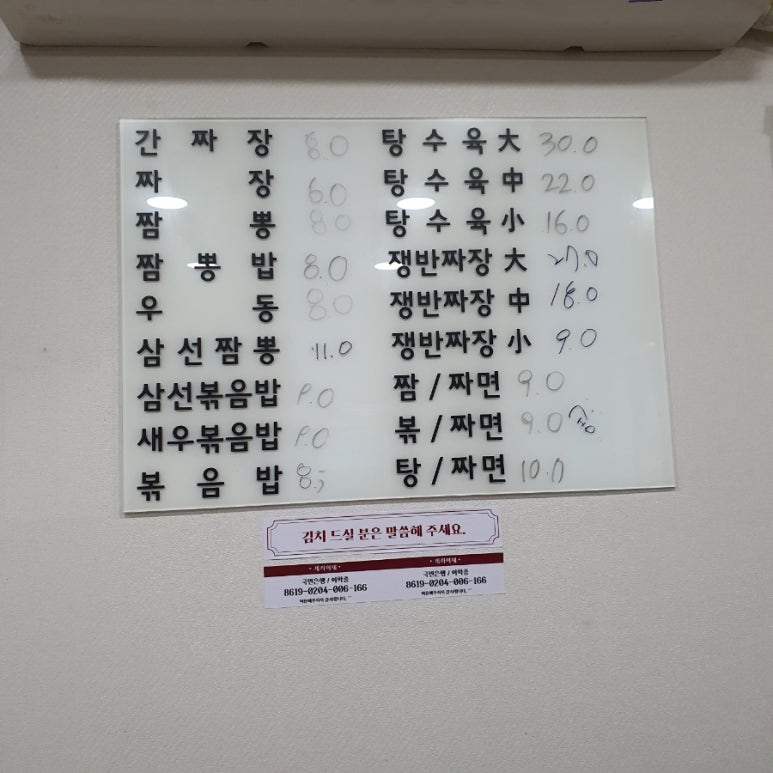 간짜장 8.0
짜장 6.0
짬뽕 8.0
짬뽕밥 8.0
우동 8.0
삼선짬뽕 11.0
삼선볶음밥 9.0
새우볶음밥 9.0
볶음밥 8.-
탕수육 大 30.0
탕수육 中 22.0
탕수육 小 16.0
쟁반짜장 大 27.0
쟁반짜장 中 18.0
쟁반짜장 小 9.0
짬/짜면 9.0
볶/짜면 9.0
탕/짜면 10.0
김치 드실 분은 말씀해 주세요.
· 계좌이체 ·
국민은행 /
8619-0204-006-166
· 계좌이체 ·
국민은행 /
8619-0204-006-166